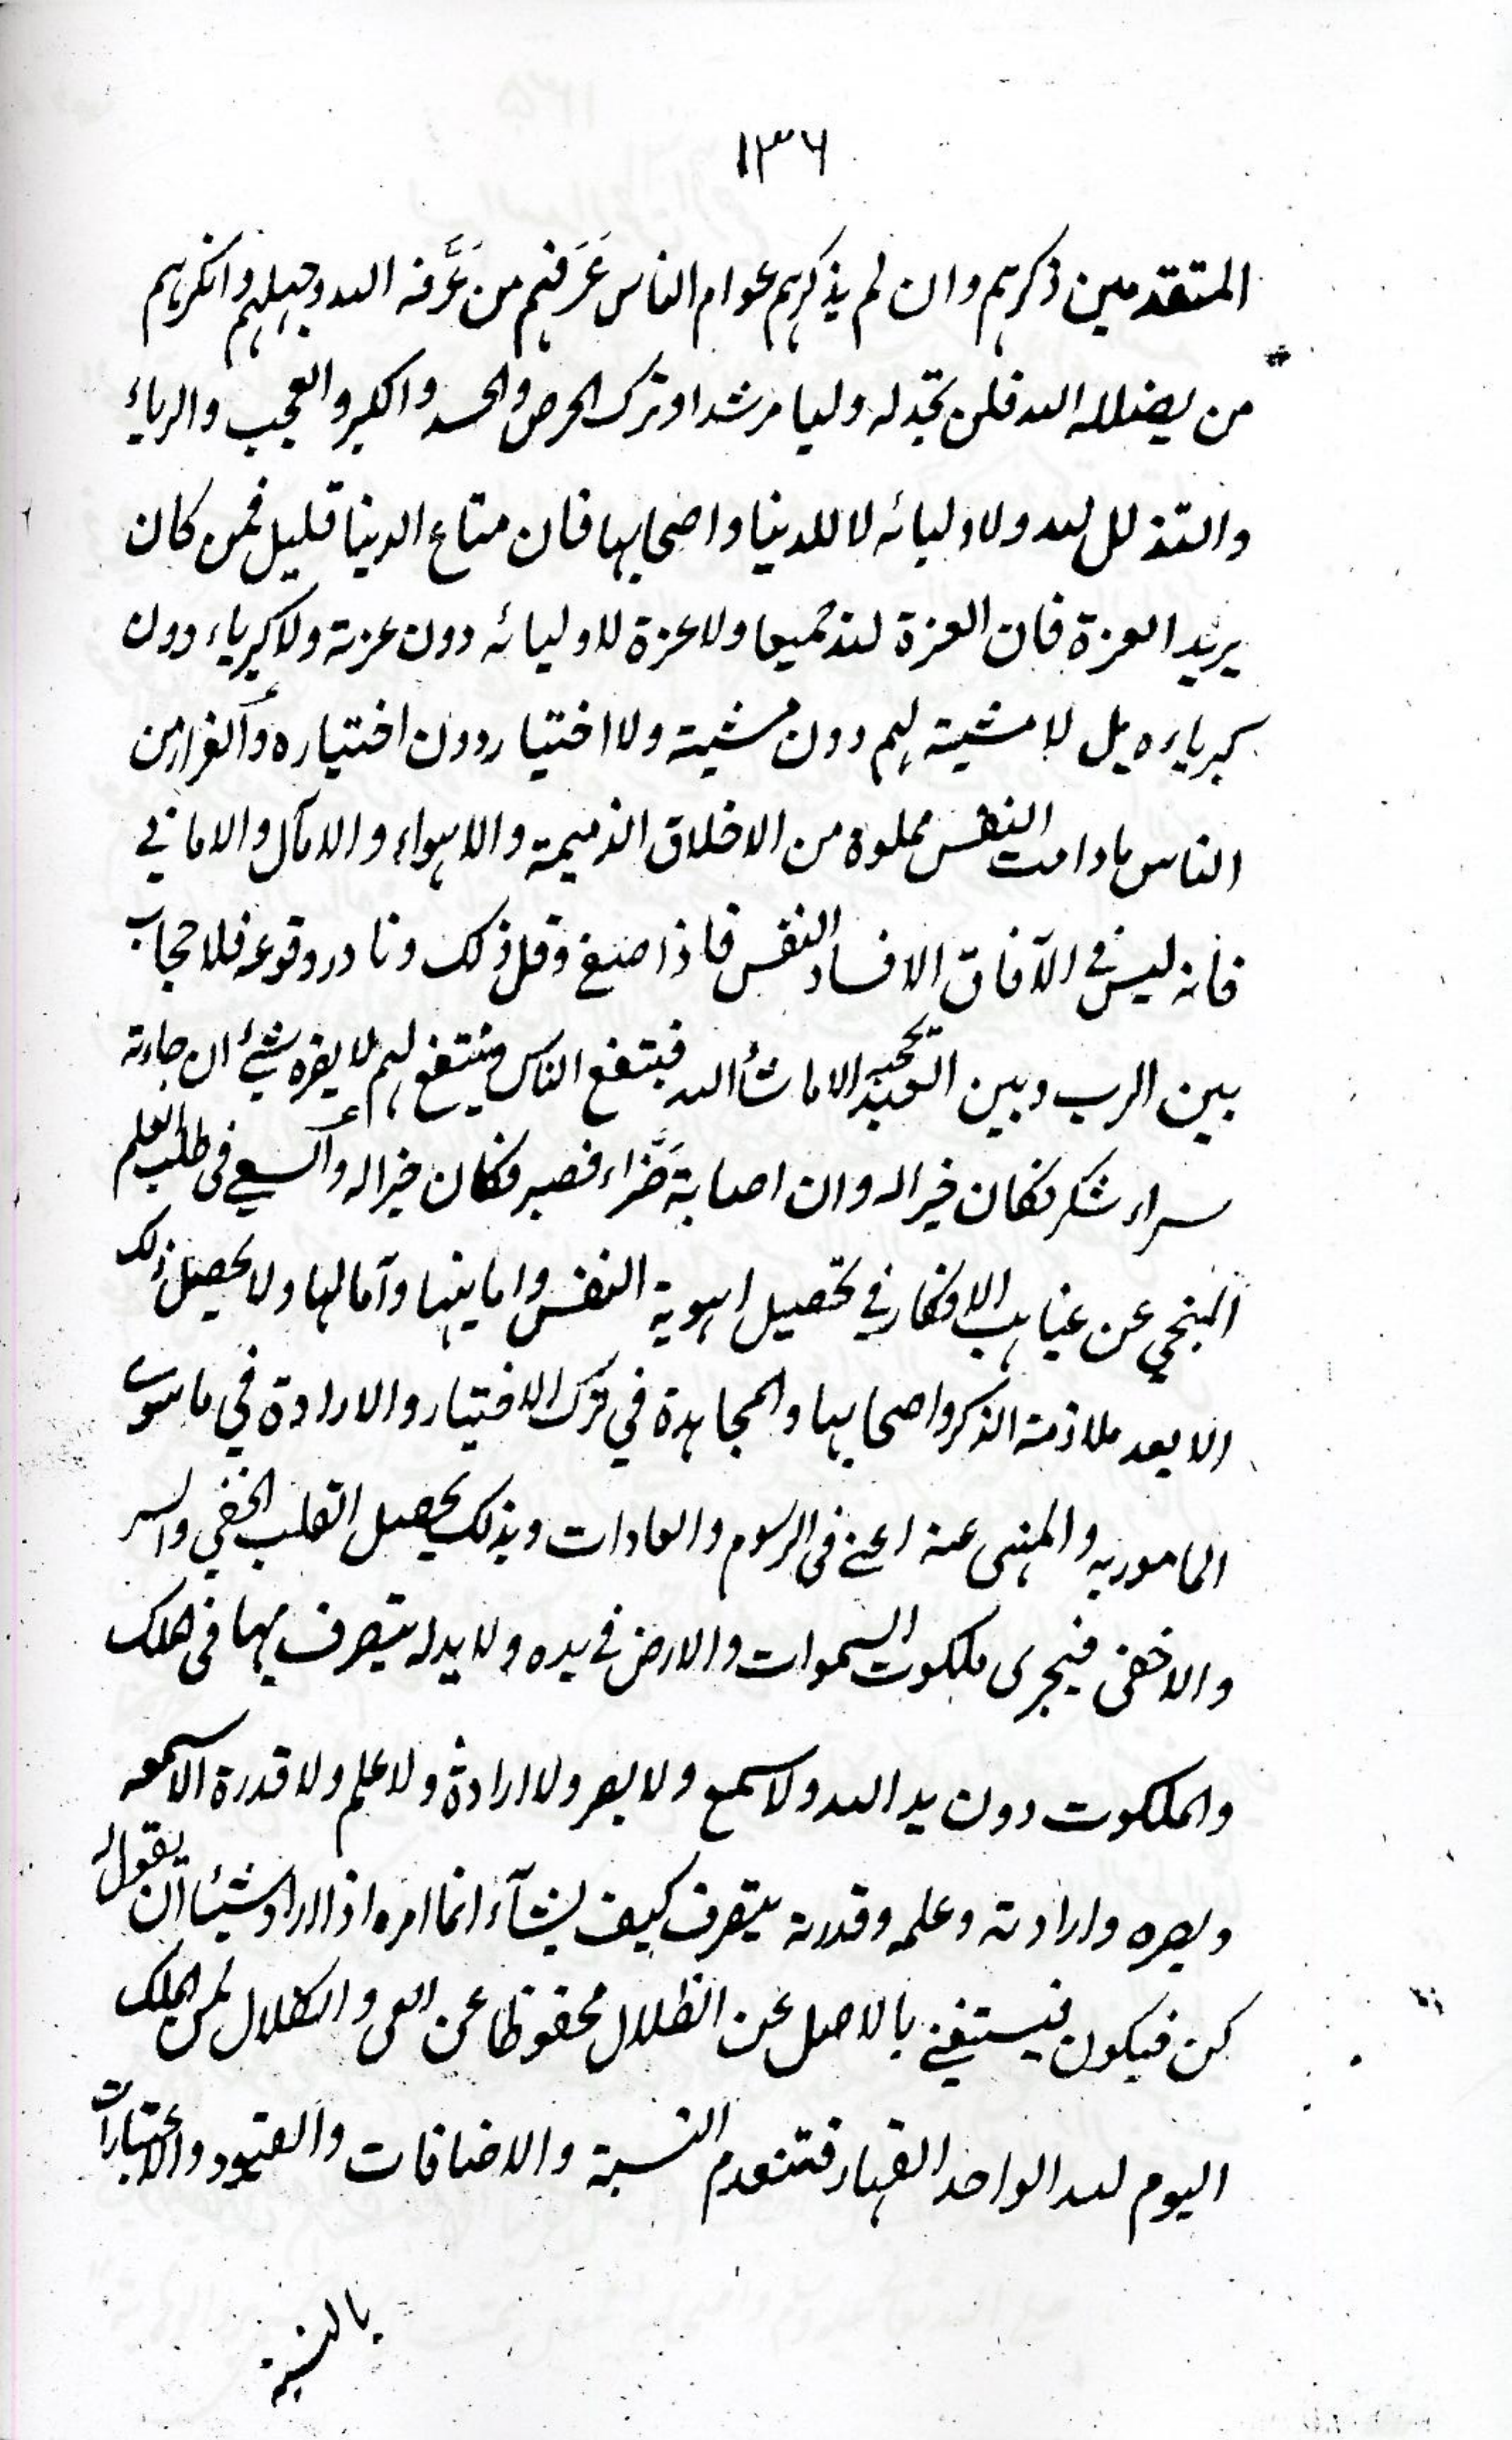 ١٣٦
المتقدمين ذكرهم وان لم يذكرهم عوام الناس عَرَفهم من عَرَّفه الله وجهلهم وانكرهم
من يضلله الله فلن تجد له وليا مرشدا وترك الحرص والحسد والكبر والعجب والرياء
والتذلل لله ولاوليائه لا للدنيا واصحابها فان متاع الدنيا قليل فمن كان
يريد العزة فان العزة لله جميعا ولا عزة لاوليائه دون عزته ولا كبرياء دون
كبرياءه بل لا مشية لهم دون مشيته ولا اختيار دون اختياره والفرار من
الناس مادامت النفس مملوة من الاخلاق الذميمة والاهواء والامآل والاماني
فانه ليس في الآفاق الا فساد النفس فاذا صفي وقل ذلك ونادر وقوعه فلا حجاب
بين الرب وبين العبد الا ما شأ الله فينتفع الناس وينتفع بهم لا يضره شئ ان جاءته
سراء شكر فكان خيرا له وان اصابة ضَرَّاء فصبر فكان خيرا له والسعي في طلب العلم
المنجي عن غياهب الافكار في تحصيل اهوية النفس وامانيها وآمالها ولا يحصل ذلك
الا بعد ملازمة الذكر واصحابها والمجاهدة في ترك الاختيار والارادة في ما سوى
المامور به والمنهى عنه اعنى فى الرسوم والعادات وبذلك يحصل القلب الخفي والسر
والاخفى فيجرى ملكوت السموات والارض في يده ولا يد له يتصرف بها فى الملك
والملكوت دون يد الله ولا سمع ولا بصر ولا ارادة ولا علم ولا قدرة الا سمعه
وبصره وارادته وعلمه وقدرته يتصرف كيف يشآء انما امره اذا اراد شيئا ان يقول له
كن فيكون فيستغنى بالاصل عن الظلال محفوظا عن العى والكلال لمن الملك
اليوم لله الواحد القهار فتنعدم النسبة والاضافات والقيود والاعتبارات
بالنسبة